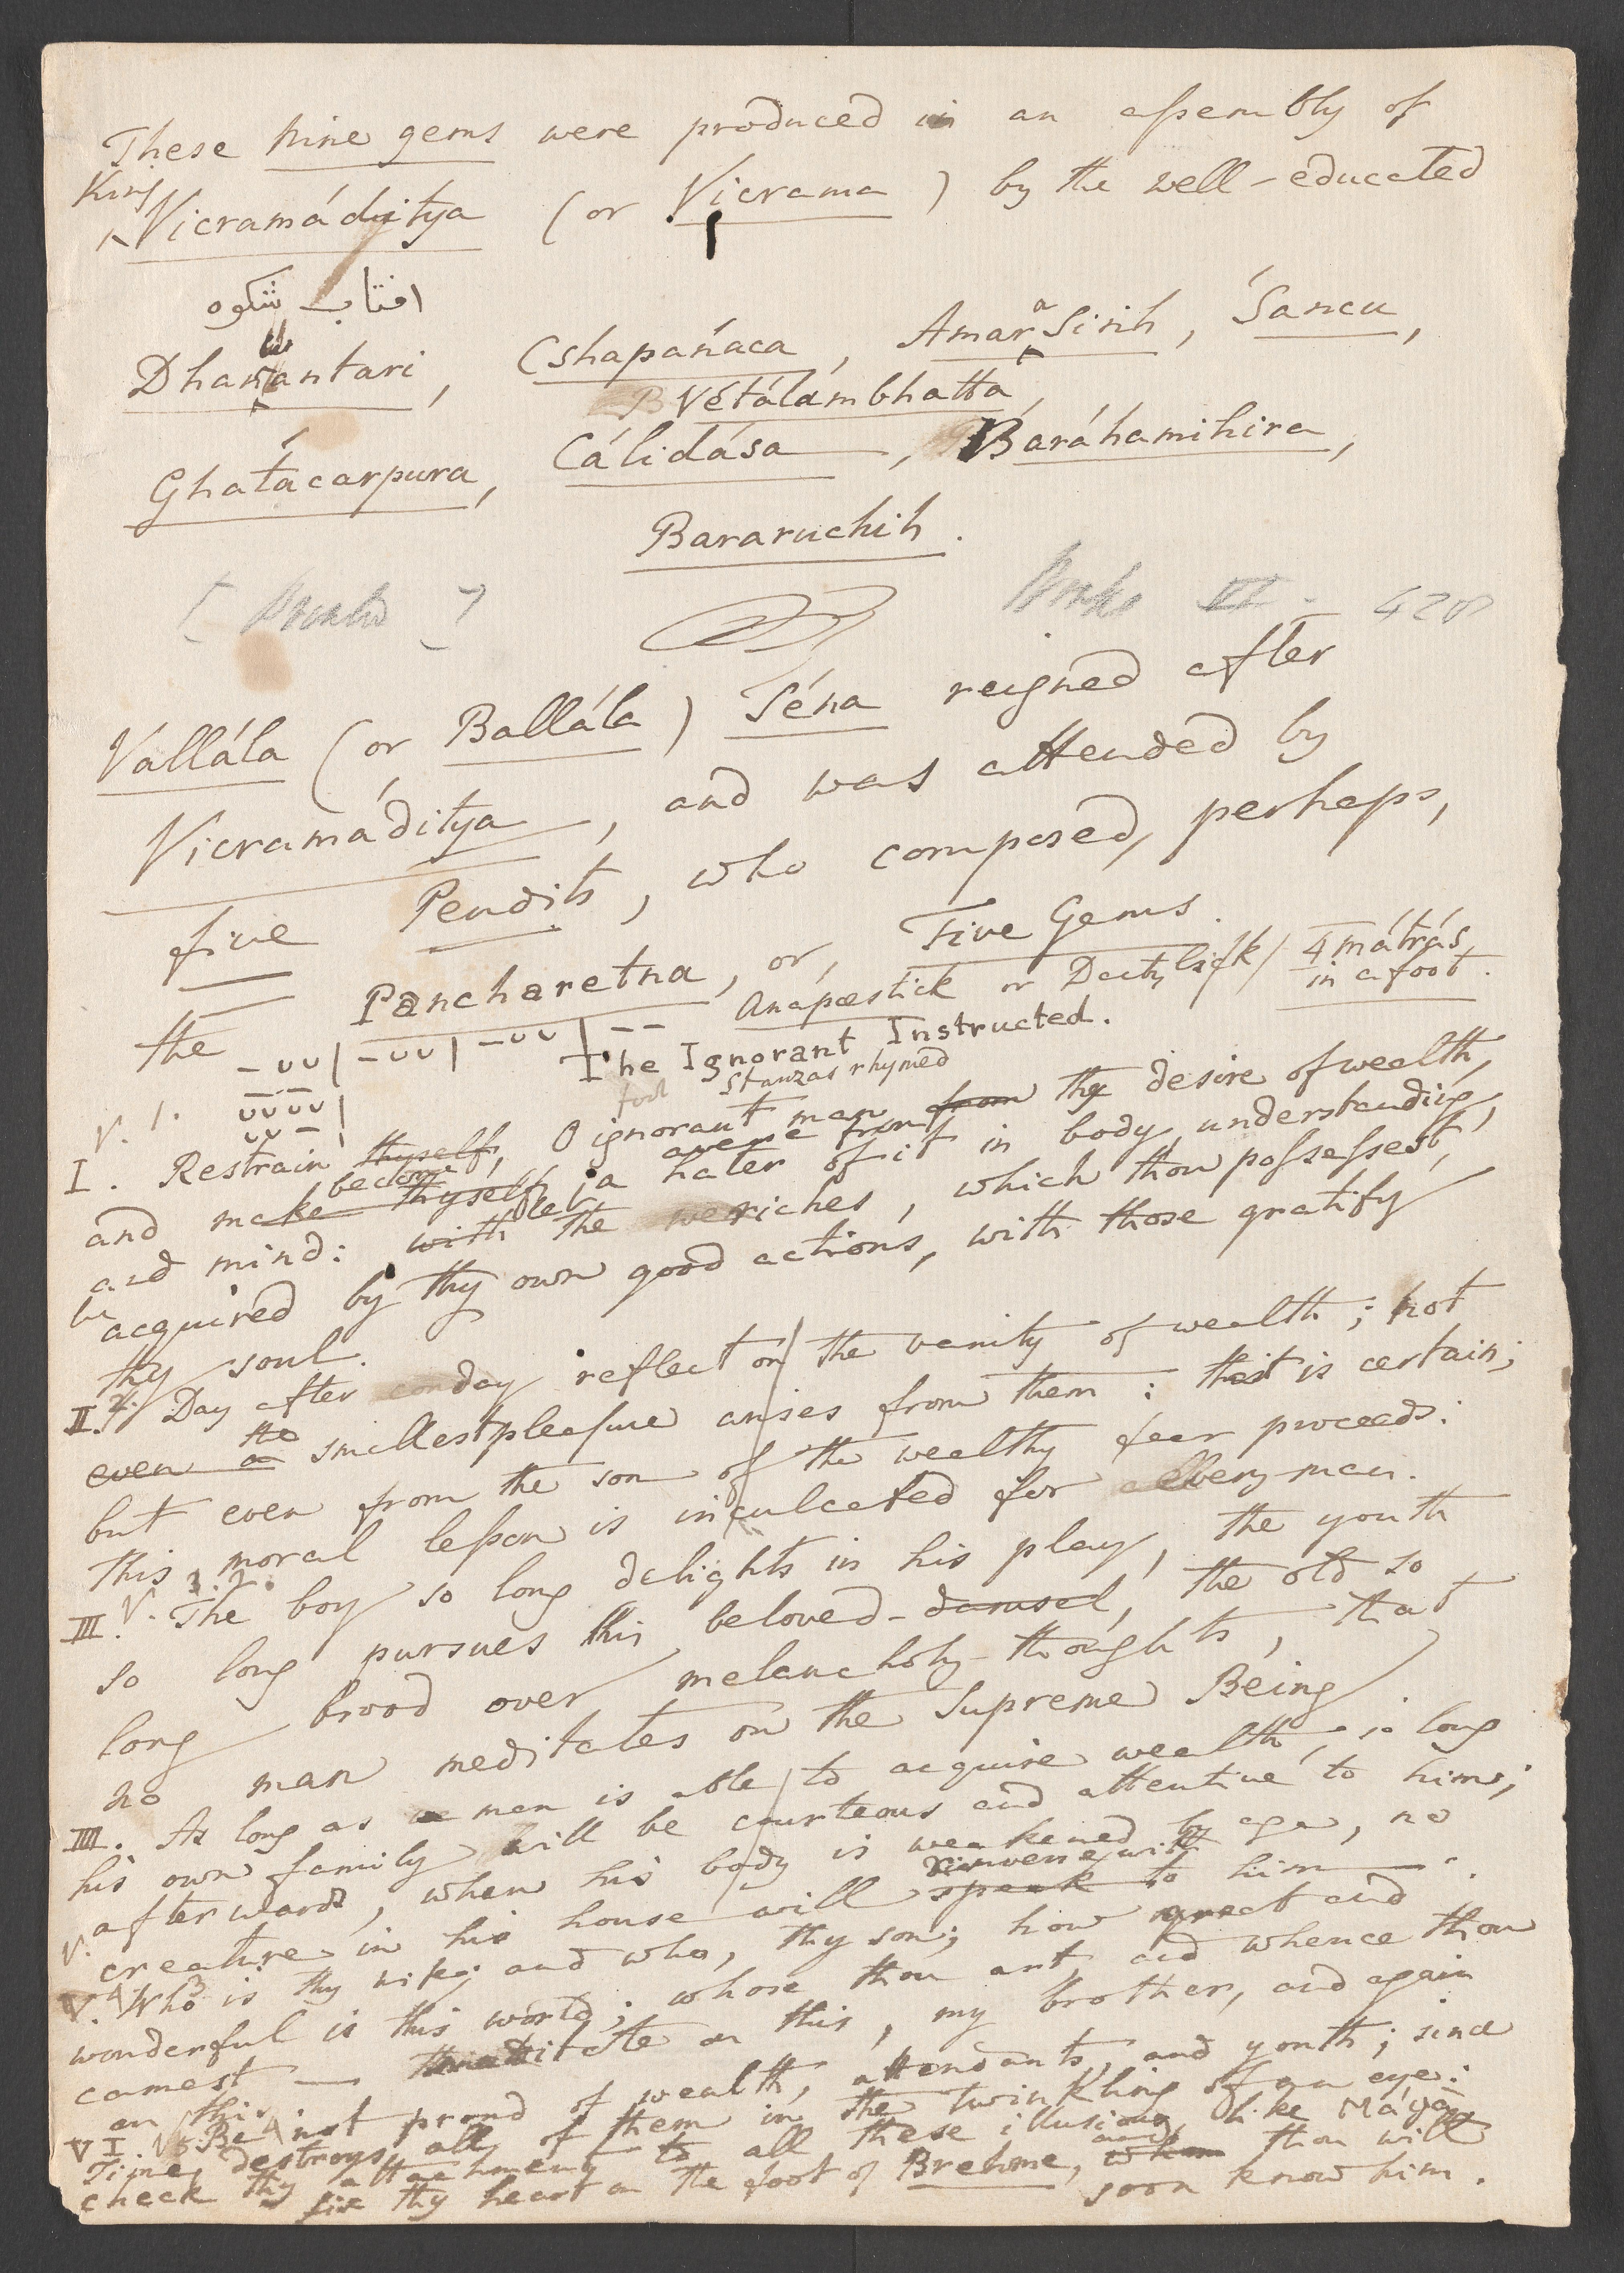 These nine gems were produced in an assembly of
King
Vicramáditya (or Vicrama) by the well-educated
افتاب شكوه
Dhanwantari, Cshapańaca, Amara Sinh, Śancu,
Vétálambhatta,
Ghatacarpura, Cálidása, Baráhamihira,
Bararuchih.
[ Printed ] Works VI. 428
Vallála (or Ballála) Séna reigned after
Vicramáditya, and was attended by
five Pendits, who composed, perhaps,
the Pancharetna, or, Five Gems.
Anapæstick or Dactylick / 4 mátrás
in a foot.
– ᴗᴗ | – ᴗᴗ | – ᴗᴗ | – –
The Ignorant Instructed.
fool Stanzas rhymed
V. 1. ᴗᴗᴗᴗ |
ᴗᴗ –
I. Restrain thyself, O ignorant man from thy desire of wealth,
become averse from
and make thyself a hater of it in body, understanding,
and mind: with the riches, which thou possessest,
be acquired by thy own good actions, with those gratify
thy soul.
II. 2. Day after day reflect on the vanity of wealth; not
the
even a smallest pleasure arises from them: that is certain;
but even from the son of the wealthy fear proceeds:
This moral lesson is inculcated for every man.
III. V. 3. The boy so long delights in his play, the youth
so long pursues his beloved damsel, the old so
long brood over melancholy thoughts, that
no man meditates on the Supreme Being.
IIII. As long as a man is able to acquire wealth, so long
his own family will be courteous and attentive to him;
afterwards, when his body is weakened by age, no
converse with
creature in his house will speak to him.
V. Who is thy wife; and who, thy son; how great and
wonderful is this world; whose thou art, and whence thou
camest — meditate on this, my brother, and again
on this.
VI. Be not proud of wealth, attendants, and youth; since
Time destroys all of them in the twinkling of an eye:
check thy attachment to all these illusions, like Máyà
and
fix thy heart on the foot of Brehme, whom thou will
soon know him.